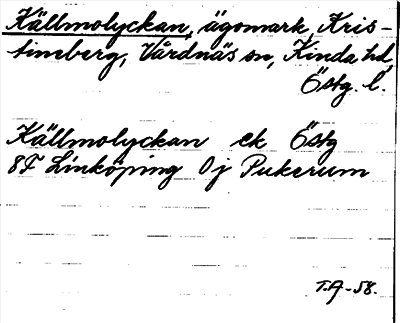 Källmolyckan, ägomark, Kris-
tineberg, Vårdnäs sn, Kinda hd,
Östg. l.
Källmolyckan ek Östg
8F Linköping 0j Pukerum
T.A-58.